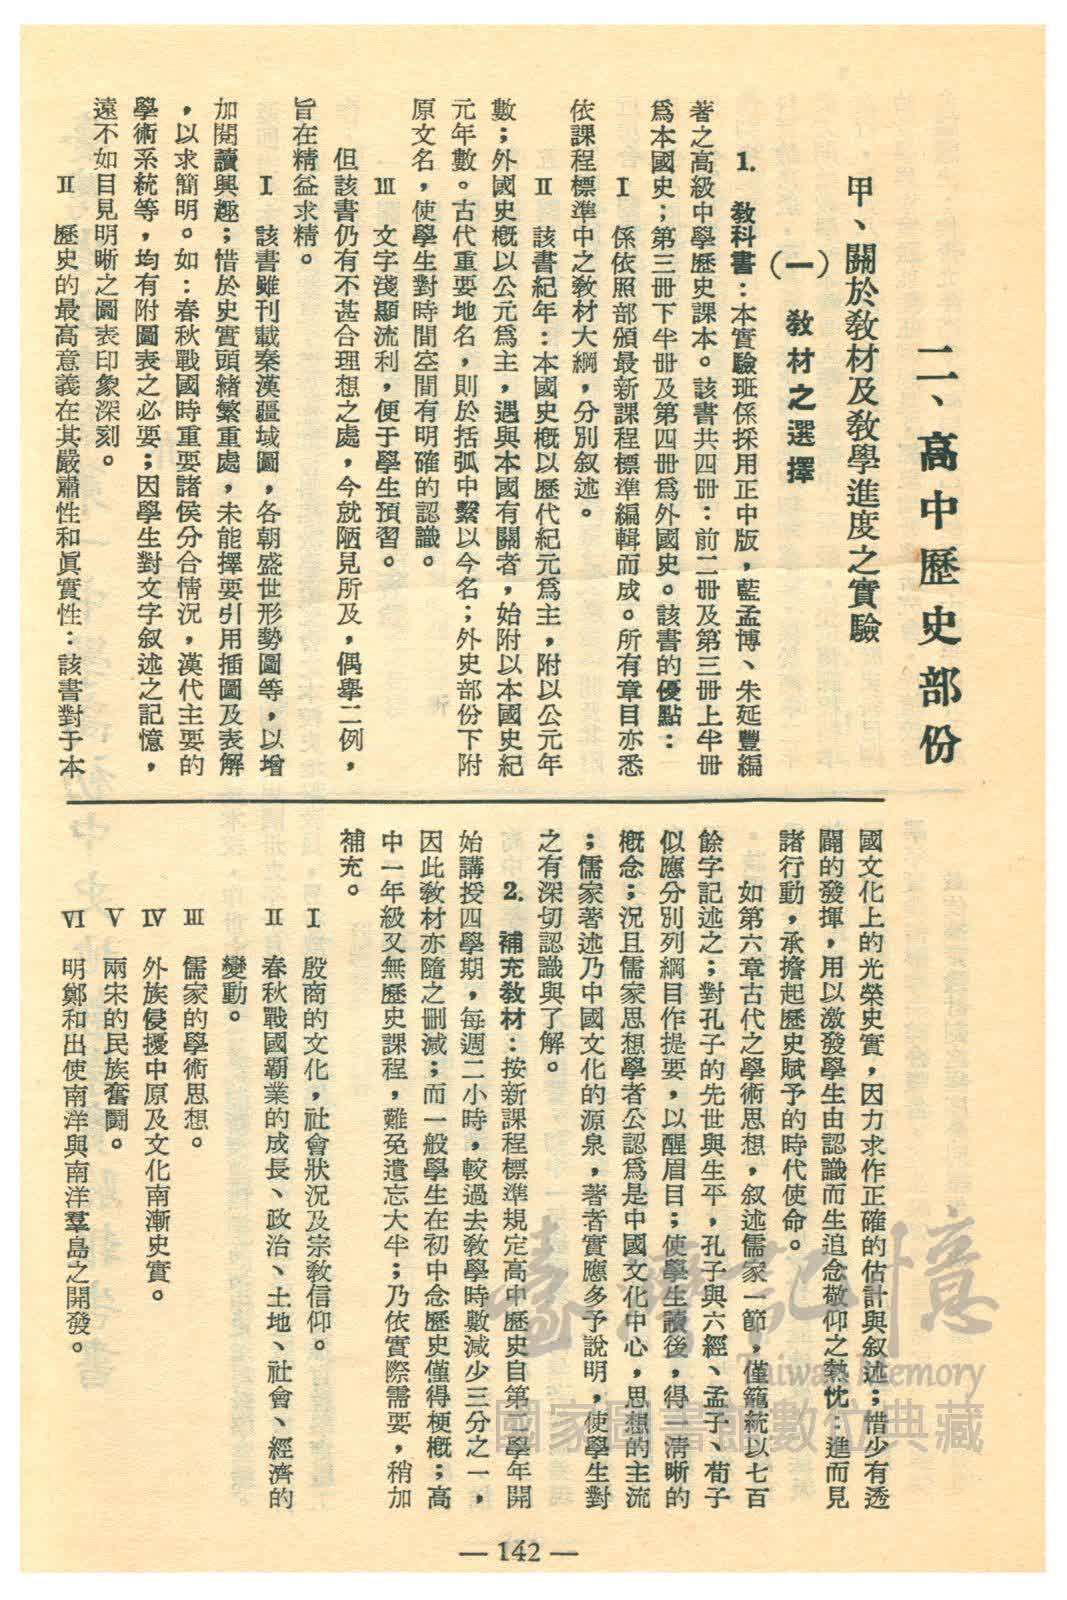 二、高中歷史部份
甲、關於教材及教學進度之實驗
(一) 教材之選擇
1. 教科書：本實驗班係採用正中版，藍孟博、朱延豐編
著之高級中學歷史課本。該書共四冊：前二冊及第三冊上半冊
爲本國史；第三冊下半冊及第四冊爲外國史。該書的優點：
I 係依照部頒最新課程標準編輯而成。所有章目亦悉
依課程標準中之教材大綱，分別叙述。
II 該書紀年：本國史概以歷代紀元爲主，附以公元年
數；外國史概以公元爲主，遇與本國有關者，始附以本國史紀
元年數。古代重要地名，則於括弧中繫以今名；外史部份下附
原文名，使學生對時間空間有明確的認識。
III 文字淺顯流利，便于學生預習。
但該書仍有不甚合理想之處，今就陋見所及，偶舉二例，
旨在精益求精。
I 該書雖刊載秦漢疆域圖，各朝盛世形勢圖等，以增
加閱讀興趣；惜於史實頭緒繁重處，未能擇要引用插圖及表解
，以求簡明。如：春秋戰國時重要諸侯分合情況，漢代主要的
學術系統等，均有附圖表之必要；因學生對文字叙述之記憶，
遠不如目見明晰之圖表印象深刻。
II 歷史的最高意義在其嚴肅性和眞實性：該書對于本
國文化上的光榮史實，因力求作正確的估計與叙述；惜少有透
闢的發揮，用以激發學生由認識而生追念敬仰之熱忱；進而見
諸行動，承擔起歷史賦予的時代使命。
如第六章古代之學術思想，叙述儒家一節，僅籠統以七百
餘字記述之；對孔子的先世與生平，孔子與六經、孟子、荀子
似應分別列綱目作提要，以醒眉目；使學生讀後，得一清晰的
概念；況且儒家思想學者公認爲是中國文化中心，思想的主流
；儒家著述乃中國文化的源泉，著者實應多予說明，使學生對
之有深切認識與了解。
2. 補充教材：按新課程標準規定高中歷史自第二學年開
始講授四學期，每週二小時，較過去教學時數減少三分之一，
因此教材亦隨之刪減；而一般學生在初中念歷史僅得梗概；高
中一年級又無歷史課程，難免遺忘大半；乃依實際需要，稍加
補充。
I 殷商的文化，社會狀況及宗教信仰。
II 春秋戰國霸業的成長、政治、土地、社會、經濟的
變動。
III 儒家的學術思想。
IV 外族侵擾中原及文化南漸史實。
V 兩宋的民族奮鬪。
VI 明鄭和出使南洋與南洋羣島之開發。
— 142 —
臺灣記憶
Taiwan Memory
國家圖書館數位典藏